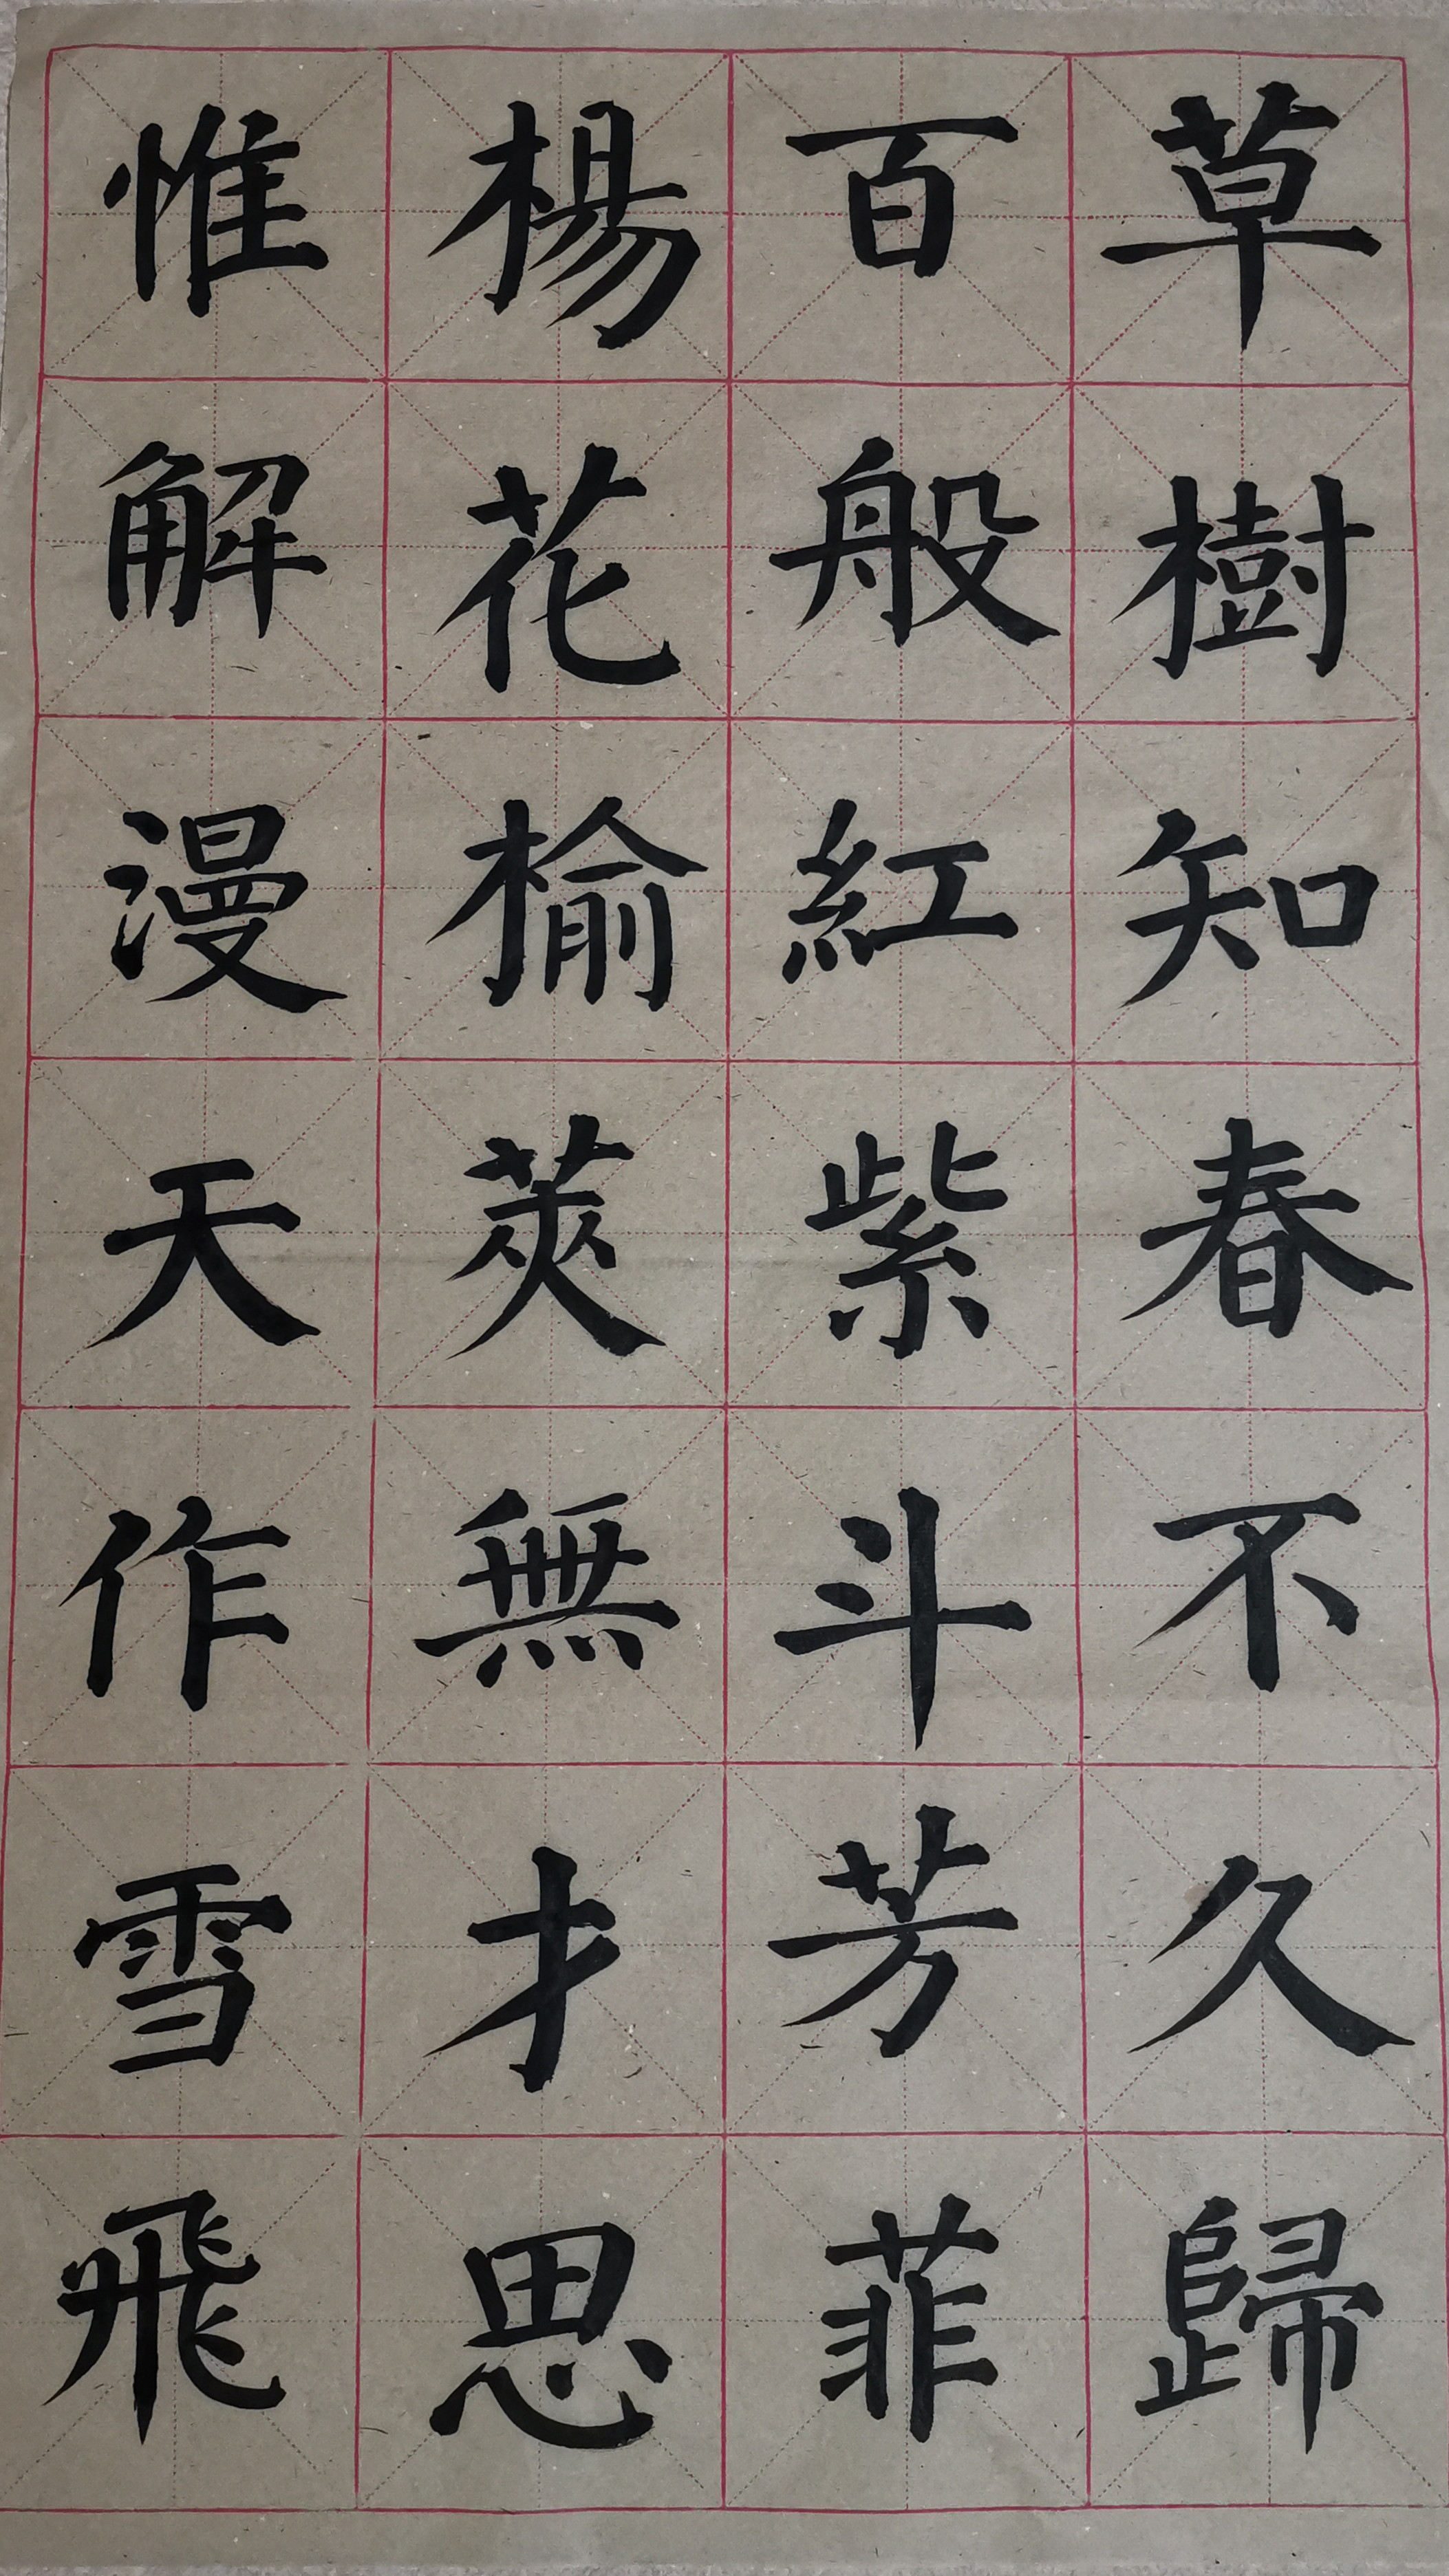 草樹知春不久歸
百般紅紫斗芳菲
楊花榆莢無才思
惟解漫天作雪飛